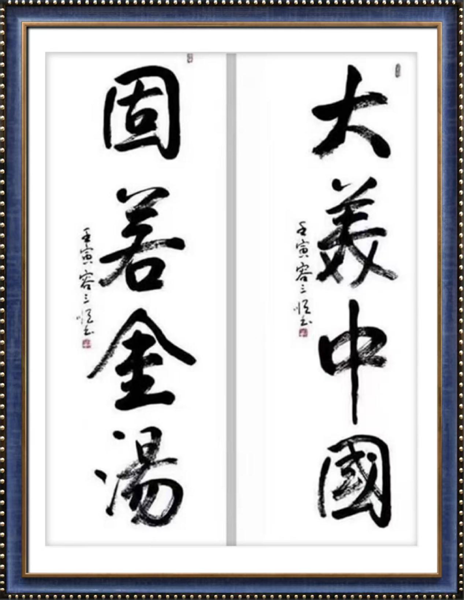 大美中國
壬寅容三恒书
固若金湯
壬寅容三恒书